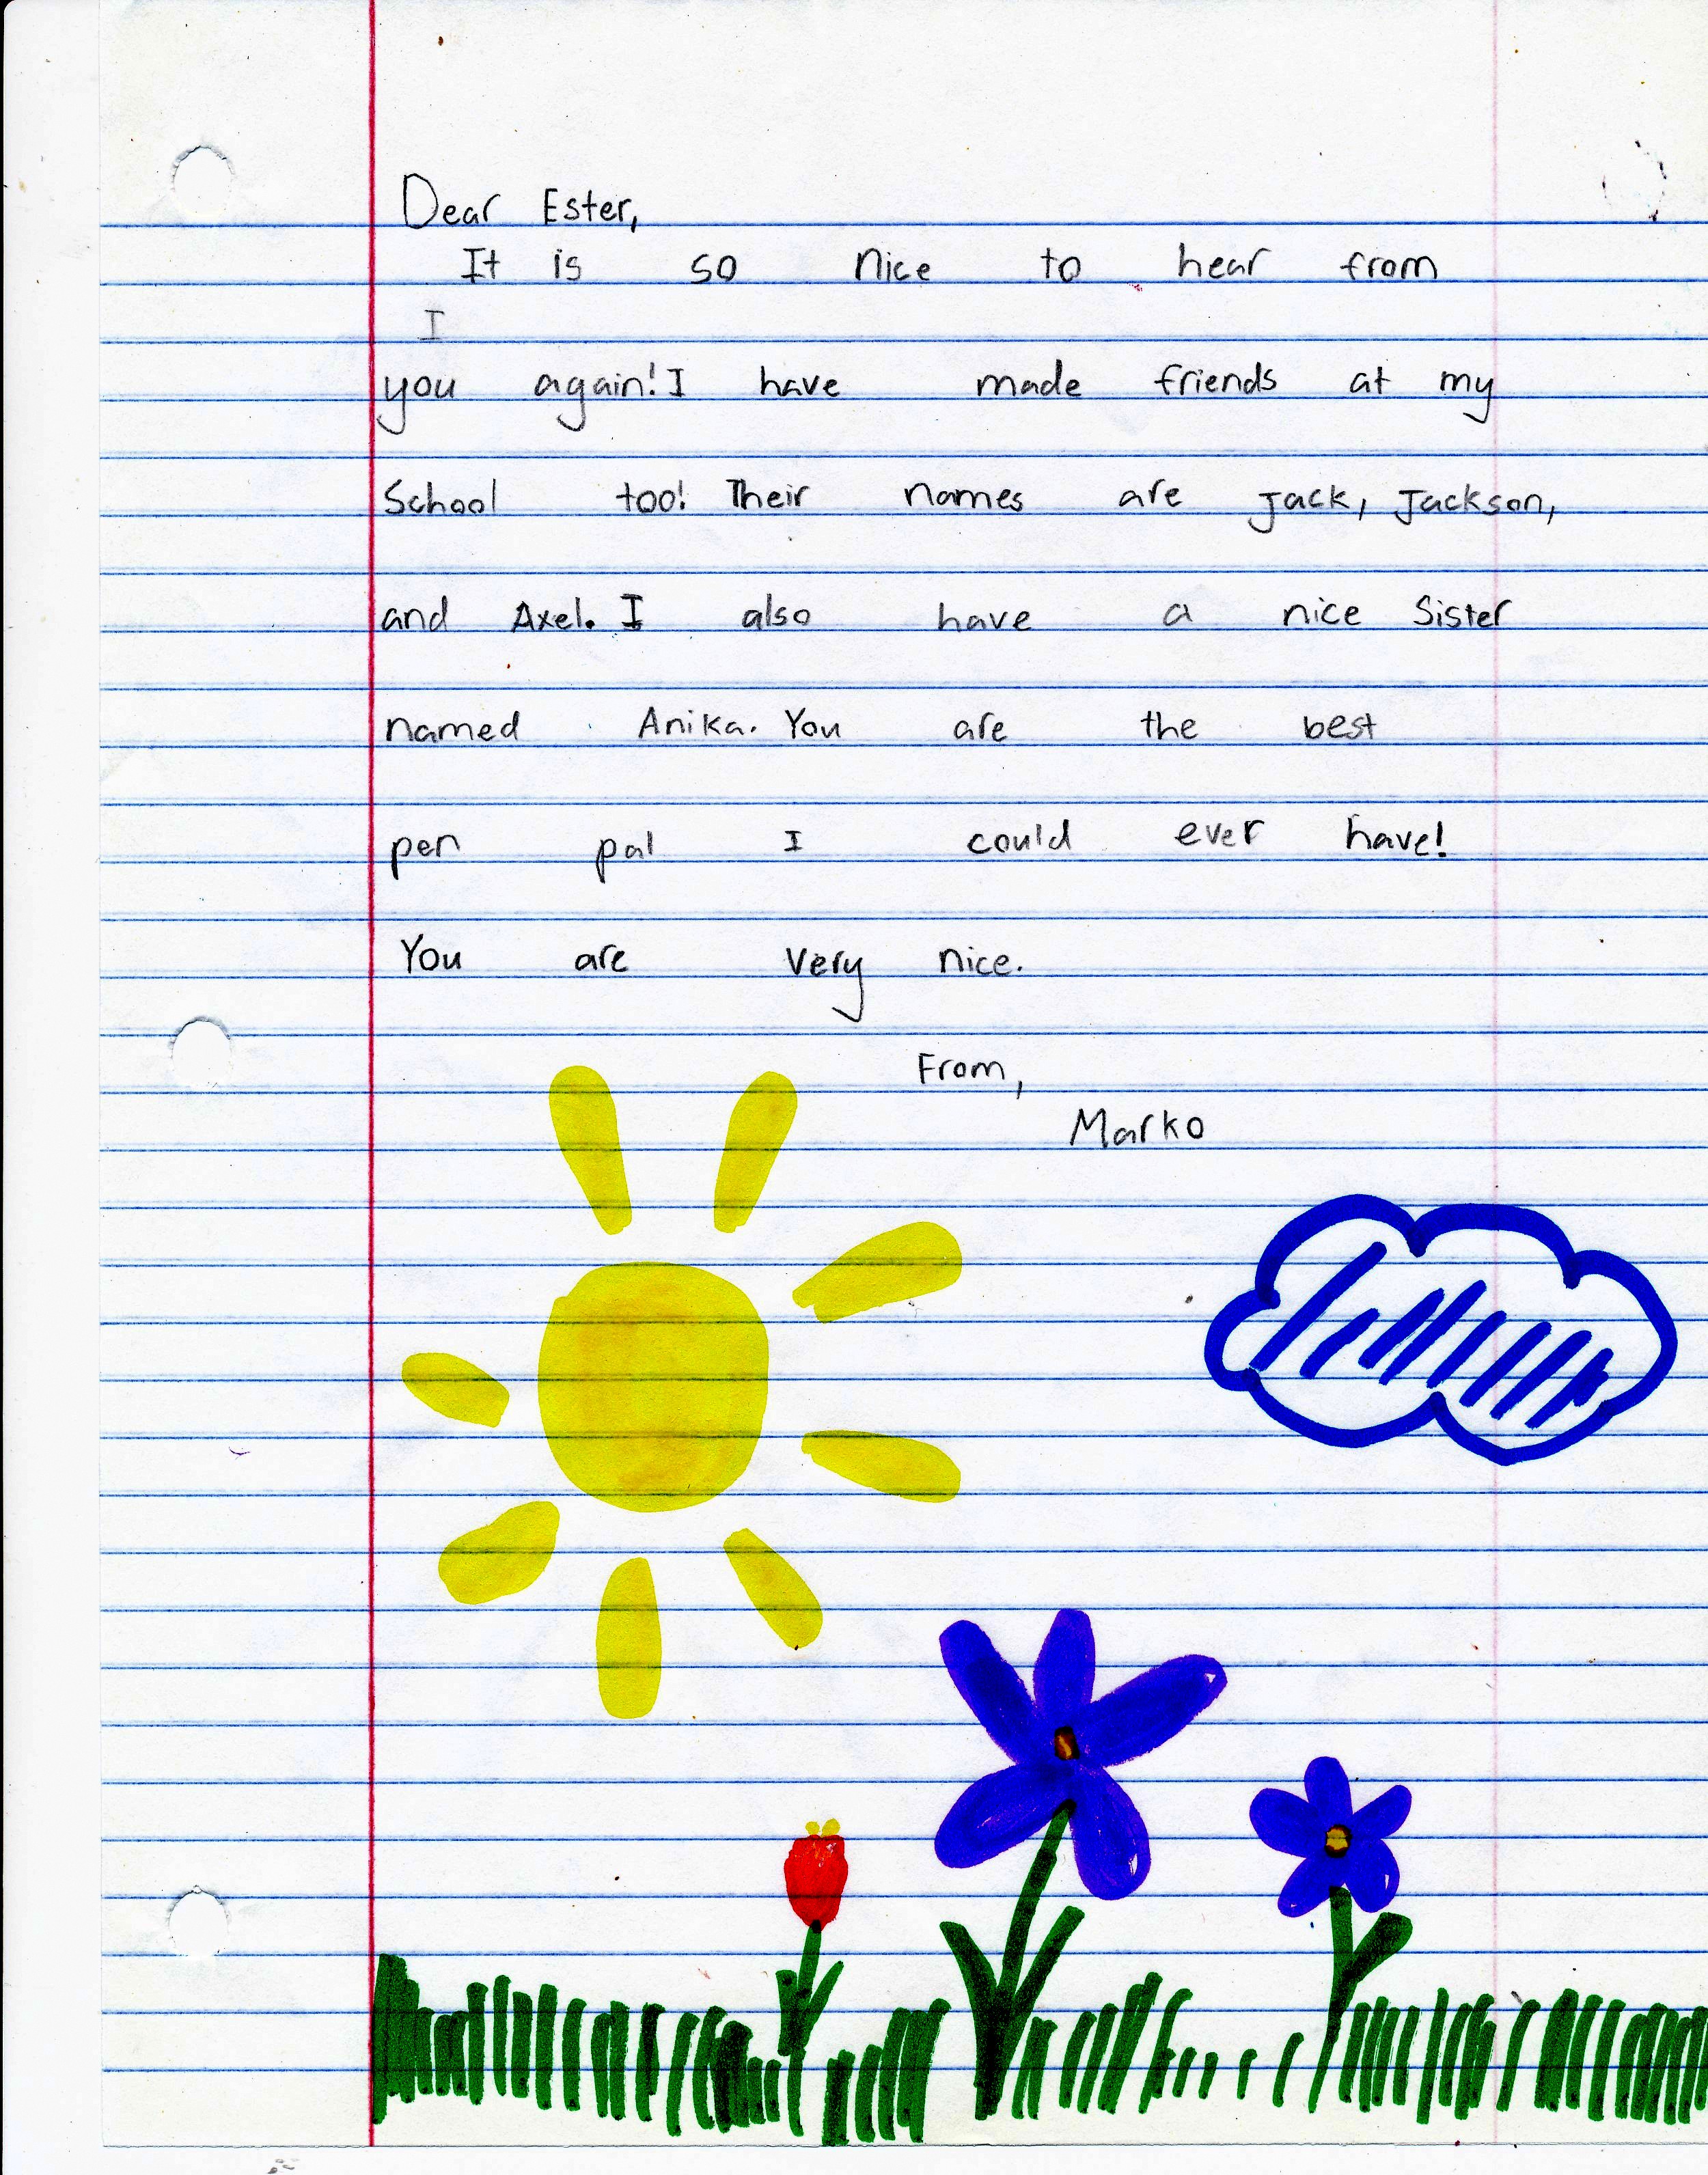 Dear Ester,
It is so nice to hear from
I
you again! I have made friends at my
School too! Their names are Jack, Jackson,
and Axel. I also have a nice Sister
named Anika. You are the best
pen pal I could ever have!
You are very nice.
From,
Marko